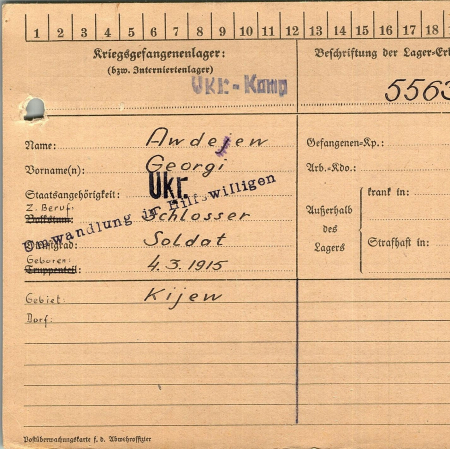 1 2 3 4 5 6 7 8 9 10 11 12 13 14 15 16 17 18
Kriegsgefangenenlager:
(bzw. Interniertenlager)
Ukr.-Komp
Beschriftung der Lager-Erk
5563
Name: Awdejew
Vorname(n): Georgi
Staatsangehörigkeit: Ukr.
Umwandlung in Hilfswilligen
Z. Beruf.
Volkstum: Schlosser
Dienstgrad: Soldat
Geboren:
Truppenteil: 4.3.1915
Gebiet: Kijew
Dorf:
Gefangenen-Kp.:
Arb.-Kdo.:
Außerhalb
des
Lagers
krank in:
Strafhaft in:
Postüberwachungskarte f. d. Abwehroffizier